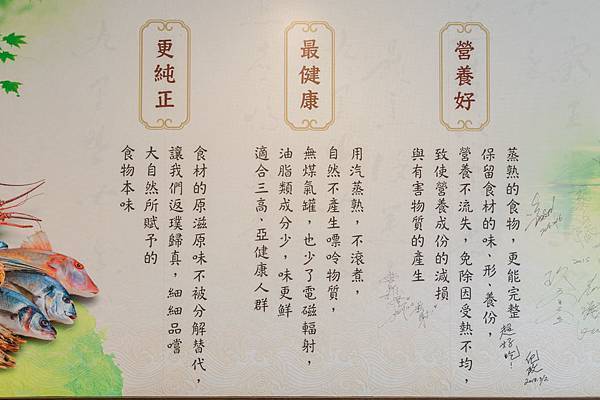 營養好
蒸熟的食物，更能完整
保留食材的味、形、養份，
營養不流失，免除因受熱不均，
致使營養成份的減損
與有害物質的產生
最健康
用汽蒸熟，不滾煮，
自然不產生嘌呤物質，
無煤氣罐，也少了電磁輻射，
油脂類成分少，味更鮮
適合三高、亞健康人群
更純正
食材的原滋原味不被分解替代，
讓我們返璞歸真，細細品嚐
大自然所賦予的
食物本味
超好吃！